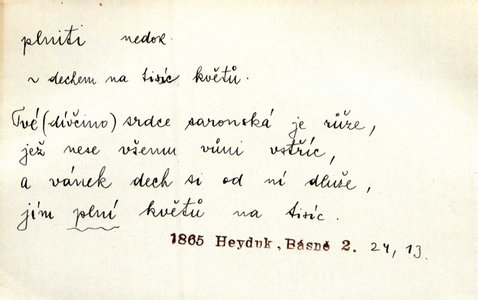 plniti nedok.
~ dechem na tisíc květů.
Tvé (dívčino) srdce saronská je růže,
jež nese všemu vůni vstříc,
a vánek dech si od ní dluže,
jím plní květů na tisíc.
1865 Heyduk, Básně 2. 24, 13.